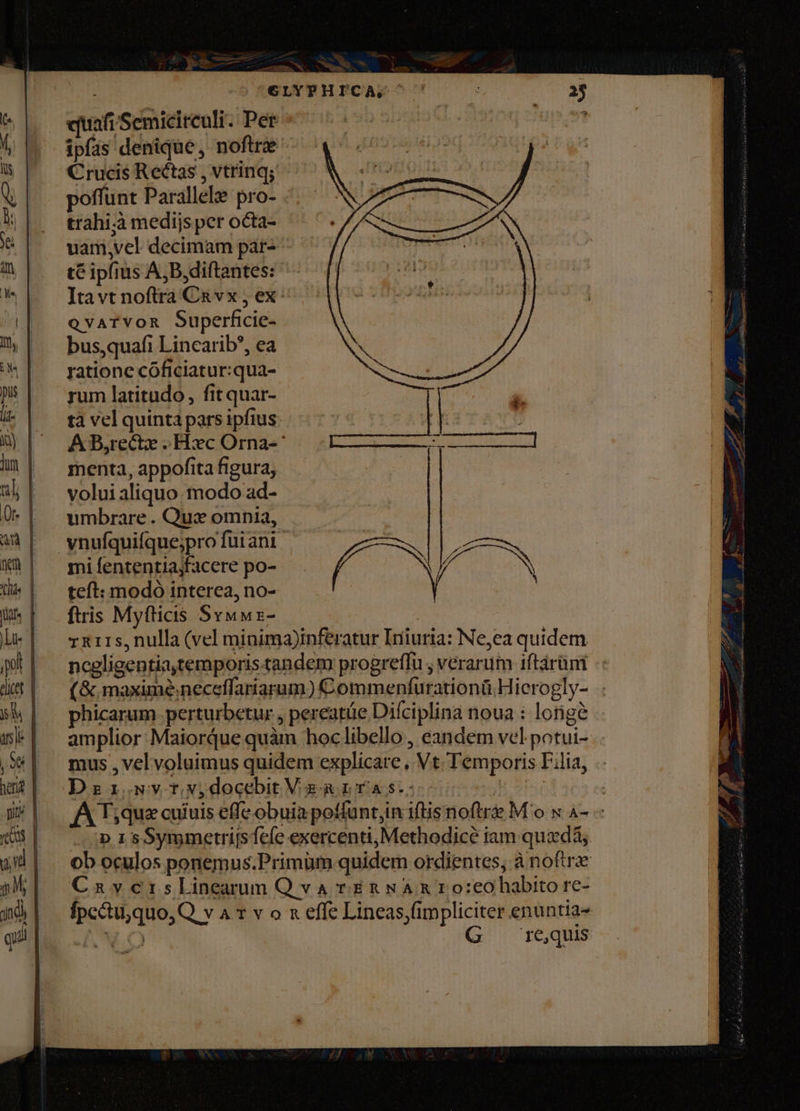 GLYPHICA. 25
quaſi Semicirculi. Per
ipſas denique, noſtræ
Crucis Rectas, vtrinq;
poſſunt Parallelæ pro-
trahi, à medijs per octa-
uam, vel decimam par-
tẽ ipſius A,B, diſtantes:
Ita vt noſtra CRVX, ex
QVATVOR Superficie-
bus, quaſi Linearib', ea
ratione cõficiatur: qua-
rum latitudo, ſit quar-
ta vel quinta pars ipſius
A B, rectæ. Hæc Orna-
menta, appoſita figura,
volui aliquo modo ad-
umbrare. Quæ omnia,
vnuſquiſque, pro ſui ani
mi ſententia, facere po-
teſt: modò interea, no-
ſtris Myſticis SYMME-
TRIIS, nulla (vel minima) inferatur Iniuria: Ne, ea quidem
negligentia, temporis tandem progreſſu, verarum iſtarũm
(& maximè neceſſariarum) Commenſurationũ Hierogly-
phicarum perturbetur, pereatúe Diſciplina noua: longè
amplior Maiorque quàm hoc libello, eandem vel potui-
mus, vel voluimus quidem explicare, Vt Temporis Filia,
DEI, NVTV, docebit VERITAS.
AT, quæ cuiuis eſſe obuia poſſunt, in iſtis noſtræ MONA-
DIS Symmetrijs ſeſe exercenti, Methodicè iam quædã,
ob oculos ponemus. Primùm quidem ordientes, à noſtræ
CRVCIS Linearum QVATERNARIO: eo habito re-
ſpectu, quo, QVATVOR eſſe Lineas, ſimpliciter enuntia-
G re, quis